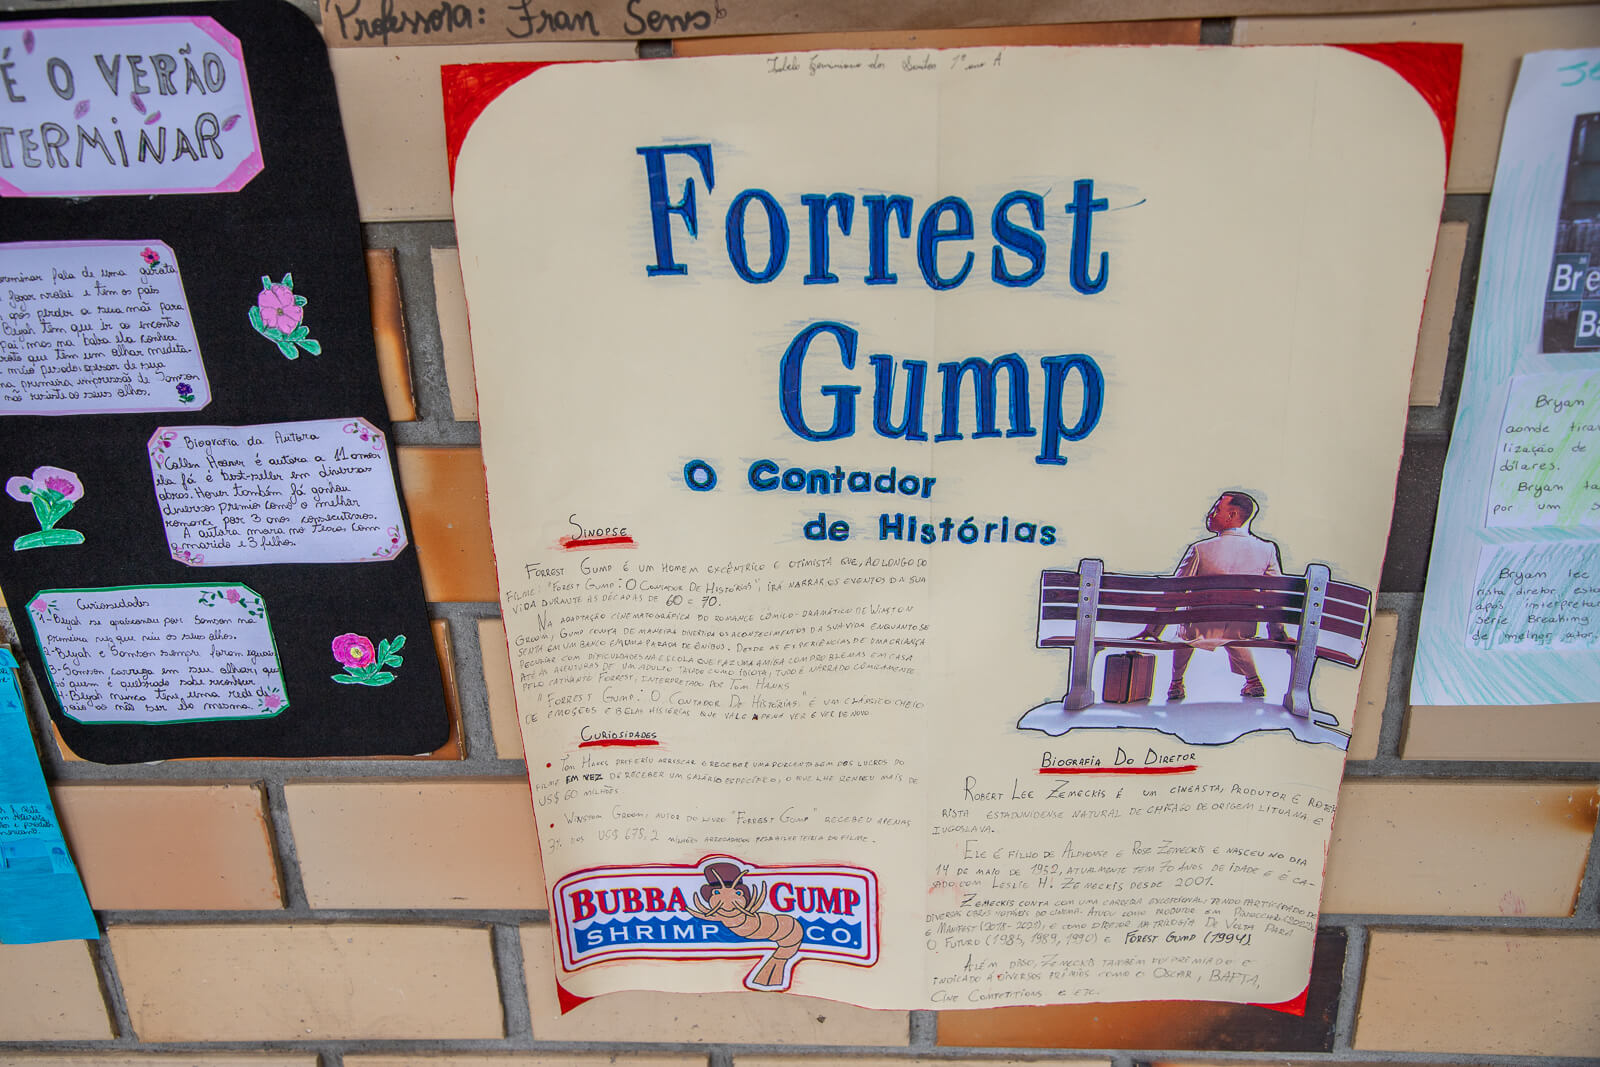 Professora: Fran Sens
É O VERÃO
TERMINAR
erminar fala de uma garota
e tem os pais
após perder a sua mãe para
Beyah tem que ir ao encontro
pai, mas na balsa ela conhece
garoto que têm um olhar
na primeira impressão de Samson
não resiste ao seus olhos.
Biografia da Autora
Collen Hoover é autora a 11 anos,
ela já é best-seller em diversas
obras. Hover também já ganhou
diversos premios como o melhor
romance por 3 anos consecutivos.
A autora mora no Texas com
o marido e 3 filhos.
Curiosidades
1-Beyah se apaixonou por Samson na
primeira vez que viu os seus olhos.
2-Beyah e Samson sempre foram iguais
3-Samson carrega em seu olhar, que
só quem é quebrado sabe reconhecer.
4-Beyah nunca teve uma rede de
apoio ao não ser ela mesma.
dos Santos 1º ano A
Forrest
Gump
O Contador
de Histórias
SINOPSE
FORREST GUMP É UM HOMEM EXCÊNTRICO E OTIMISTA QUE, AO LONGO DO
FILME: "FOREST GUMP: O CONTADOR DE HISTÓRIAS", IRÁ NARRAR OS EVENTOS DA SUA
VIDA DURANTE AS DÉCADAS DE 60 E 70.
NA ADAPTAÇÃO CINEMATOGRÁFICA DO ROMANCE CÔMICO-DRAMÁTICO DE WINSTON
GROOM, GUMP CONTA DE MANEIRA DIVERTIDA OS ACONTECIMENTOS DA SUA VIDA ENQUANTO SE
SENTA EM UM BANCO EM UMA PARADA DE ÔNIBUS. DESDE AS EXPERIÊNCIAS DE UMA CRIANÇA
PECULIAR COM DIFICULDADES NA ESCOLA QUE FAZ UMA AMIGA COM PROBLEMAS EM CASA
ATÉ AS AVENTURAS DE UM ADULTO TAXADO COMO IDIOTA; TUDO É NARRADO COMICAMENTE
PELO CATIVANTE FORREST, INTERPRETADO POR TOM HANKS
"FORREST GUMP: O CONTADOR DE HISTÓRIAS" É UM CLÁSSICO CHEIO
DE EMOÇÕES E BELAS HISTÓRIAS QUE VALE A PENA VER E VER DE NOVO.
CURIOSIDADES
• TOM HANKS PREFERIU ARRISCAR E RECEBER UMA PORCENTAGEM DOS LUCROS DO
FILME EM VEZ DE RECEBER UM SALÁRIO ESPECÍFICO, O QUE LHE RENDEU MAIS DE
US$ 60 MILHÕES.
• WINSTON GROOM, AUTOR DO LIVRO "FORREST GUMP" RECEBEU APENAS
3% DOS US$ 678,2 MILHÕES ARRECADADOS PELA BILHETERIA DO FILME.
BUBBA GUMP
SHRIMP CO.
BIOGRAFIA DO DIRETOR
ROBERT LEE ZEMECKIS É UM CINEASTA, PRODUTOR E ROTEI-
RISTA ESTADUNIDENSE NATURAL DE CHICAGO DE ORIGEM LITUANA E
IUGOSLAVA.
ELE É FILHO DE ALPHONSE E ROSE ZEMECKIS E NASCEU NO DIA
14 DE MAIO DE 1952, ATUALMENTE TEM 70 ANOS DE IDADE E É CA-
SADO COM LESLIE H. ZEMECKIS DESDE 2001.
ZEMECKIS CONTA COM UMA CARREIRA EXCEPCIONAL, TENDO PARTICIPADO DE
DIVERSAS OBRAS NOTÁVEIS DO CINEMA. ATUOU COMO PRODUTOR EM PINOCCHIO (2022)
E MANIFEST (2018-2021), E COMO DIRETOR NA TRILOGIA DE VOLTA PARA
O FUTURO (1985, 1989, 1990) E FOREST GUMP (1994)
ALÉM DISO, ZEMECKIS TAMBÉM FOI PREMIADO E
INDICADO A DIVERSOS PRÊMIOS COMO O OSCAR, BAFTA,
CINE COMPETITIONS E ETC.
Bre
Ba
Bryan
aonde tirar
lização de
dólares.
Bryan ta
por um s
Bryan lec
rista, diretor, esta
após interpretar
série Breaking
de melhor ator.